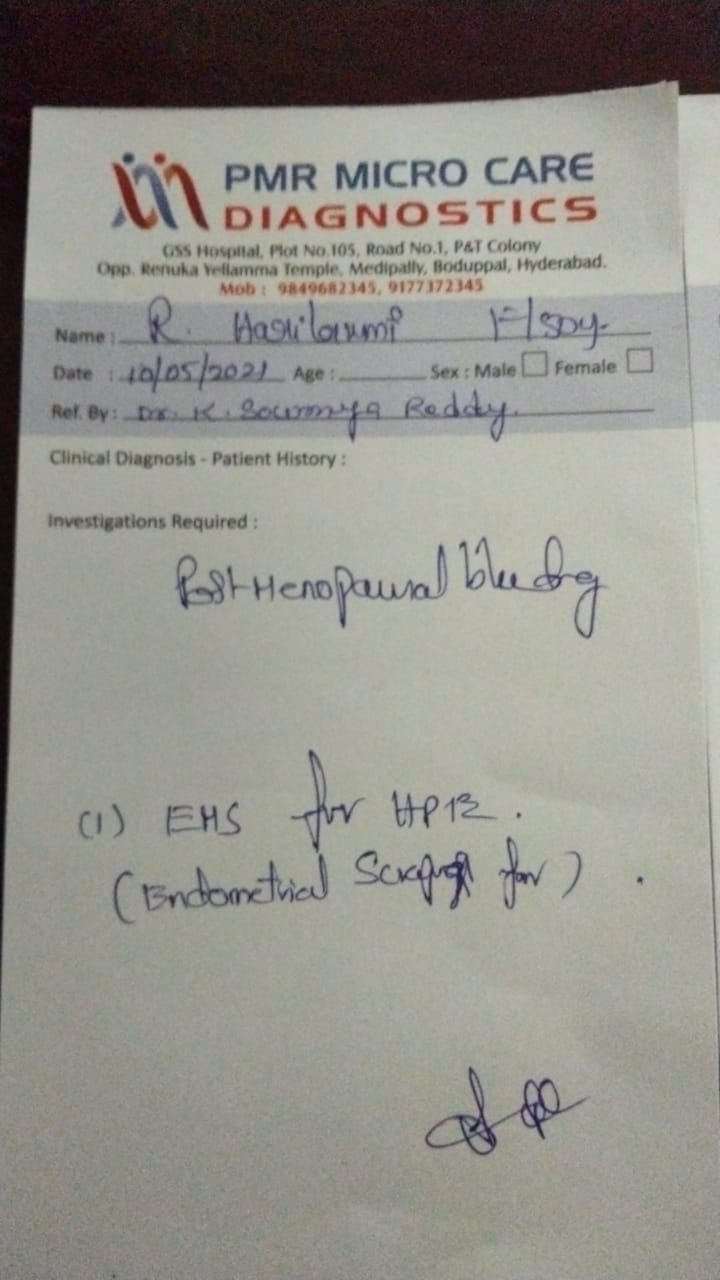 PMR MICRO CARE
DIAGNOSTICS
GSS Hospital, Plot No.105, Road No.1, P&T Colony
Opp. Renuka Yellamma Temple, Medipally, Boduppal, Hyderabad.
Mob : 9849682345, 9177372345
Name : R.
Date : 10/05/2021 Age : Sex : Male Female
Ref. By : Dr. K. Sowmya Reddy.
Clinical Diagnosis - Patient History :
Investigations Required :
Post Menopausal bleeding
(1) EMS for HPE.
(Endometrial for) .